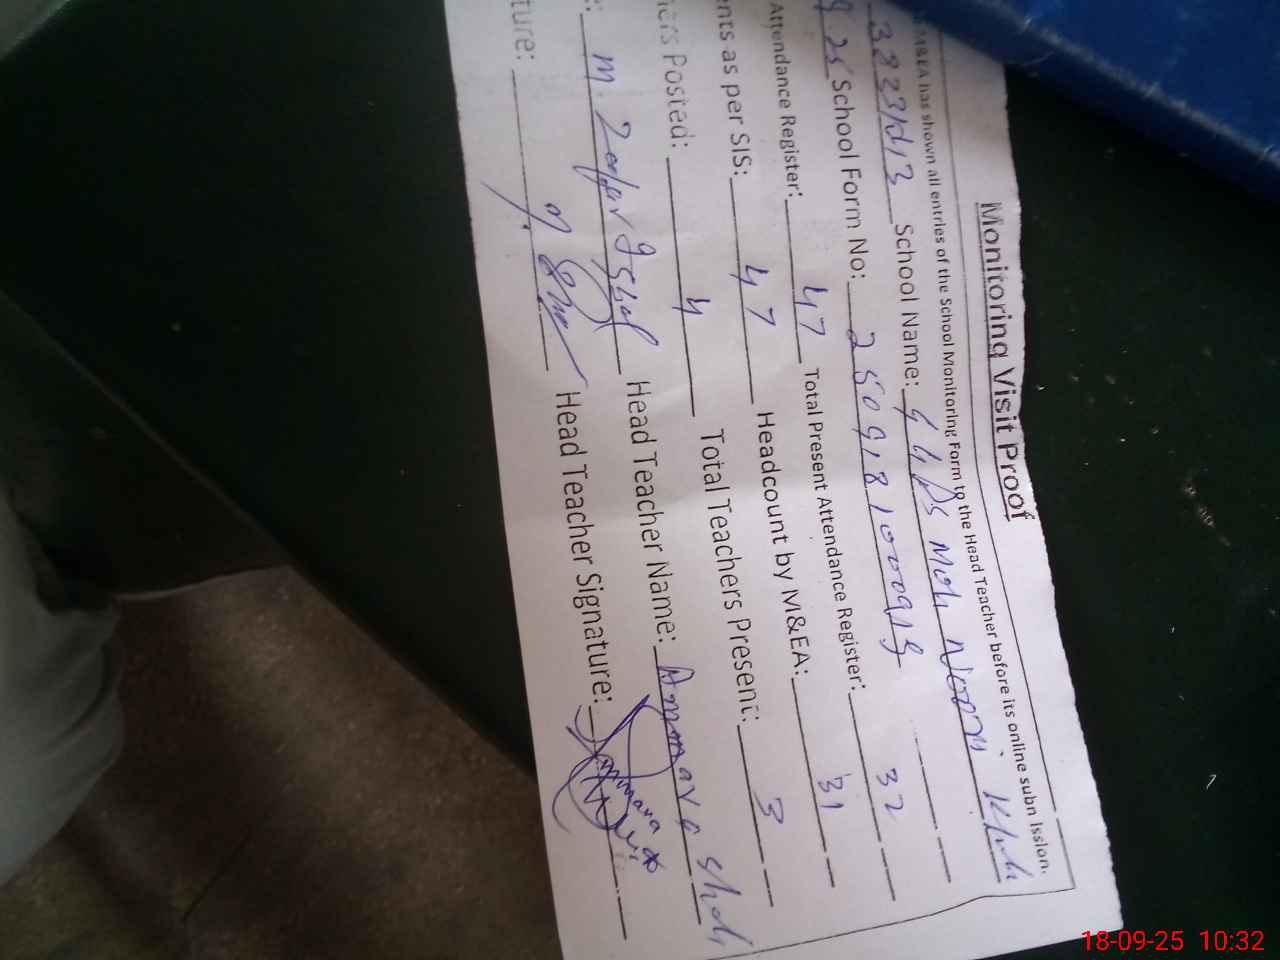 Monitoring Visit Proof
M&EA has shown all entries of the School Monitoring Form to the Head Teacher before its online subn ission.
School Name: GGPS Moh Noor
25 School Form No:
Attendance Register: 47 Total Present Attendance Register: 32
nts as per SIS: 47 Headcount by M&EA: 31
iers Posted: 4 Total Teachers Present: 3
e: M. Zafar Iqbal Head Teacher Name: Ammara
ture: Head Teacher Signature:
18-09-25 10:32